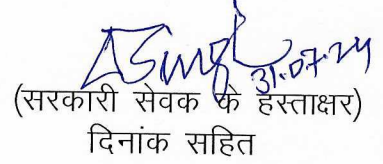 ASingh
31.07.24
(सरकारी सेवक के हस्ताक्षर)
दिनांक सहित